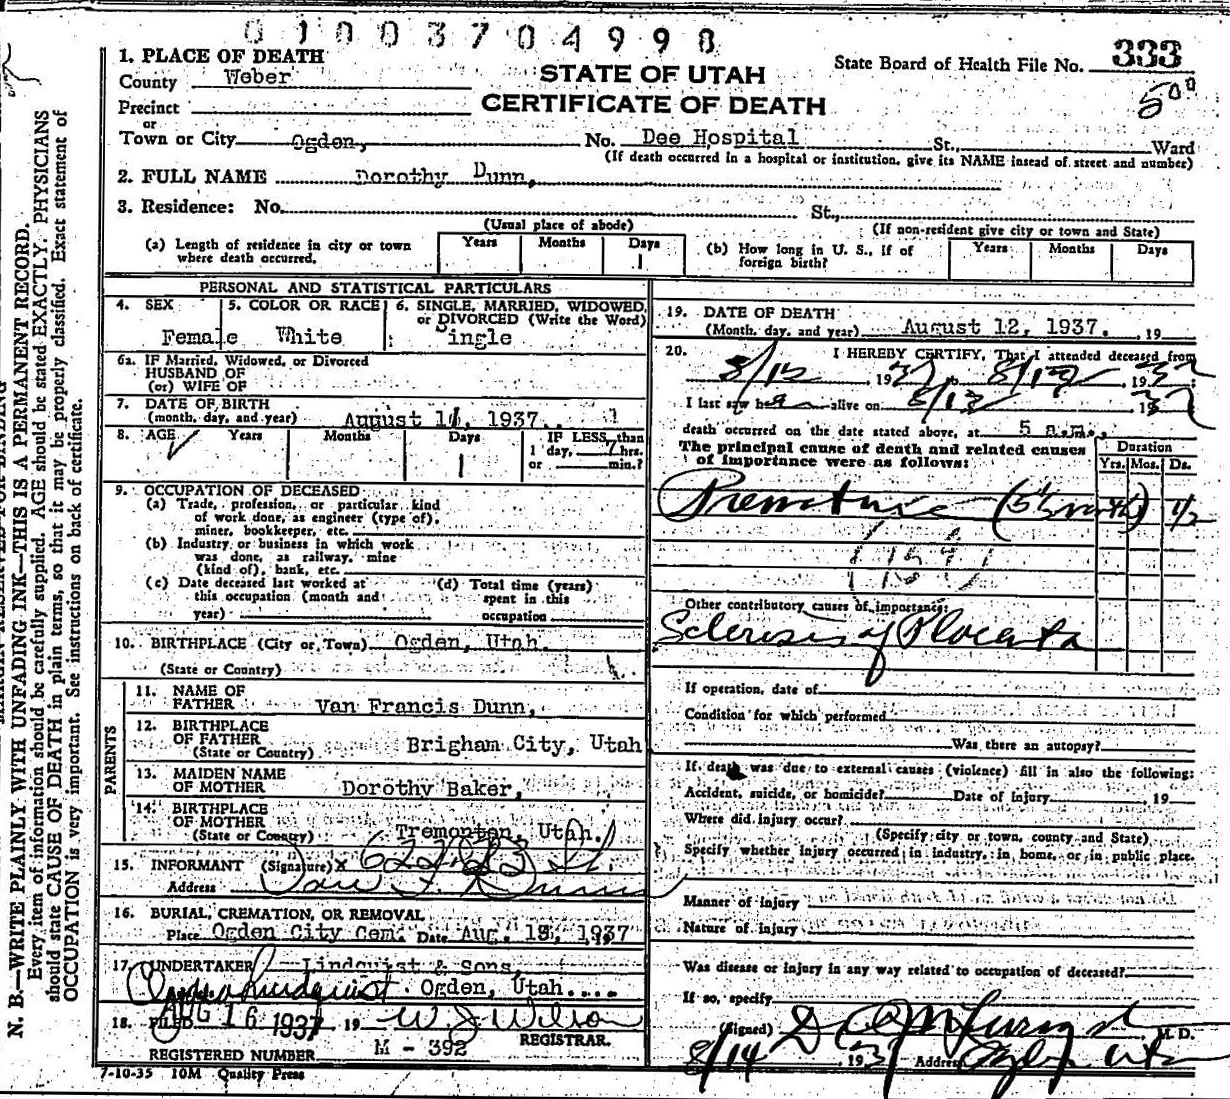 01003704998
1. PLACE OF DEATH
County Weber
STATE OF UTAH
State Board of Health File No. 333
CERTIFICATE OF DEATH
500
Precinct
or
Town or City Ogden, No. Dee Hospital St., Ward
(If death occurred in a hospital or institution, give its NAME insead of street and number)
2. FULL NAME Dorothy Dunn,
3. Residence: No. St.,
(Usual place of abode)
(If non-resident give city or town and State)
(a) Length of residence in city or town where death occurred.
Years Months Days
1
(b) How long in U. S., if of foreign birth?
Years Months Days
PERSONAL AND STATISTICAL PARTICULARS
4. SEX
Female
5. COLOR OR RACE
White
6. SINGLE, MARRIED, WIDOWED,
or DIVORCED (Write the Word)
Single
6a. IF Married, Widowed, or Divorced
HUSBAND OF
(or) WIFE OF
7. DATE OF BIRTH
(month, day, and year) August 11, 1937.
8. AGE Years Months Days
1
IF LESS than
1 day, 7 hrs.
or min.?
9. OCCUPATION OF DECEASED
(a) Trade, profession, or particular kind
of work done, as engineer (type of),
miner, bookkeeper, etc.
(b) Industry or business in which work
was done, as railway, mine
(kind of), bank, etc.
(c) Date deceased last worked at
this occupation (month and
year)
(d) Total time (years)
spent in this
occupation
10. BIRTHPLACE (City or Town) Ogden, Utah.
(State or Country)
PARENTS
11. NAME OF
FATHER Van Francis Dunn,
12. BIRTHPLACE
OF FATHER
(State or Country) Brigham City, Utah
13. MAIDEN NAME
OF MOTHER Dorothy Baker,
14. BIRTHPLACE
OF MOTHER
(State or Country) Tremonton, Utah.
15. INFORMANT (Signature) x 622 23 St.
Address Van F. Dunn
16. BURIAL, CREMATION, OR REMOVAL
Place Ogden City Cem. Date Aug. 13, 1937
17. UNDERTAKER Lindquist & Sons,
Lindquist Ogden, Utah....
18. FILED AUG 16 1937 19 W J Wilson
REGISTRAR.
REGISTERED NUMBER M - 392
7-10-35 10M Quality Press
19. DATE OF DEATH
(Month, day, and year) August 12, 1937. 19
20. I HEREBY CERTIFY, That I attended deceased from
8/12 1937 to 8/12 1937
I last saw her alive on 8/12 1937
death occurred on the date stated above, at 5 a.m.,
The principal cause of death and related causes
of importance were as follows:
Duration
Yrs. Mos. Ds.
Premature (5½ month) 1/2
(159)
Other contributory causes of importance:
Sclerosis of Placenta
If operation, date of
Condition for which performed
Was there an autopsy?
If death was due to external causes (violence) fill in also the following:
Accident, suicide, or homicide? Date of injury 19
Where did injury occur?
(Specify city or town, county and State)
Specify whether injury occurred in industry, in home, or in public place.
Manner of injury
Nature of injury
Was disease or injury in any way related to occupation of deceased?
If so, specify
(Signed) M. D.
8/14 1937 Address Ogden Utah
N. B.—WRITE PLAINLY WITH UNFADING INK—THIS IS A PERMANENT RECORD.
Every item of information should be carefully supplied. AGE should be stated EXACTLY. PHYSICIANS
should state CAUSE OF DEATH in plain terms, so that it may be properly classified. Exact statement of
OCCUPATION is very important. See instructions on back of certificate.